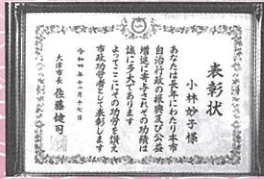 表彰状
小林妙子様
あなたは長年にわたり本市
自治行政の振興及び公益
増進に寄与されその功績は
誠に多大であります
よってここにその功労を讃え
市政功労者として表彰します
令和四年十一月十七日
大津市長 佐藤健司